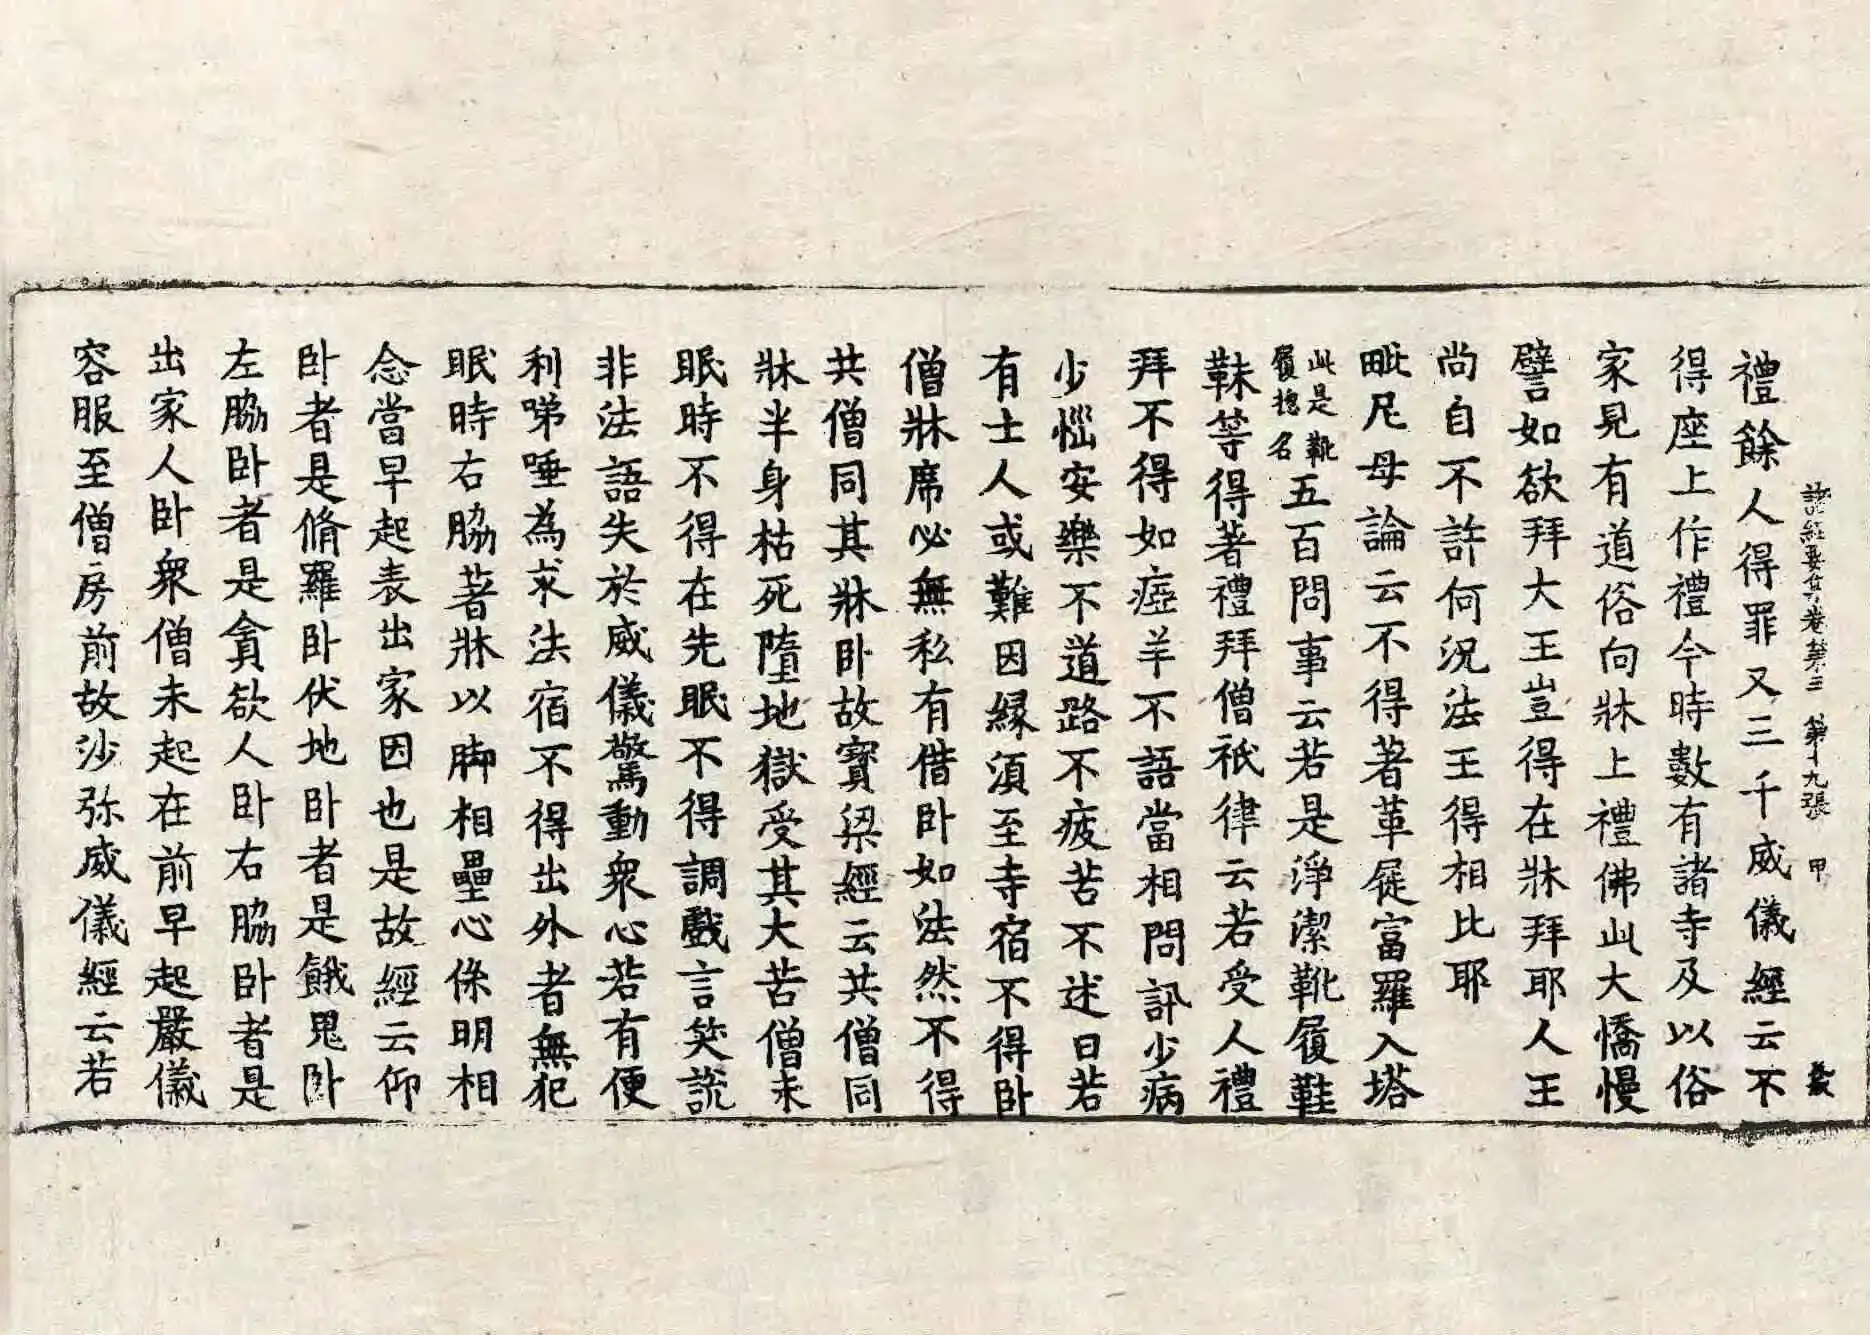 諸經要集卷第三 第十九張 甲
禮餘人得罪又三千威儀經云不
得座上作禮今時數有諸寺及以俗
家見有道俗向牀上禮佛此大憍慢
譬如欲拜大王豈得在牀拜耶人王
尚自不許何況法王得相比耶
毗尼母論云不得著革屣富羅入塔
此是靴履揔名五百問事云若是淨潔靴履鞋
靺等得著禮拜僧祇律云若受人禮
拜不得如瘂羊不語當相問訊少病
少惱安樂不道路不疲苦不述曰若
有士人或難因緣須至寺宿不得卧
僧牀席必無私有借卧如法然不得
共僧同其牀卧故寶梁經云共僧同
牀半身枯死墮地獄受其大苦僧未
眠時不得在先眠不得調戲言笑說
非法語失於威儀驚動衆心若有便
利啼唾為求法宿不得出外者無犯
眠時右脇著牀以脚相壘心係明相
念當早起表出家因也是故經云仰
卧者是脩羅卧伏地卧者是餓鬼卧
左脇卧者是貪欲人卧右脇卧者是
出家人卧衆僧未起在前早起嚴儀
容服至僧房前故沙弥威儀經云若